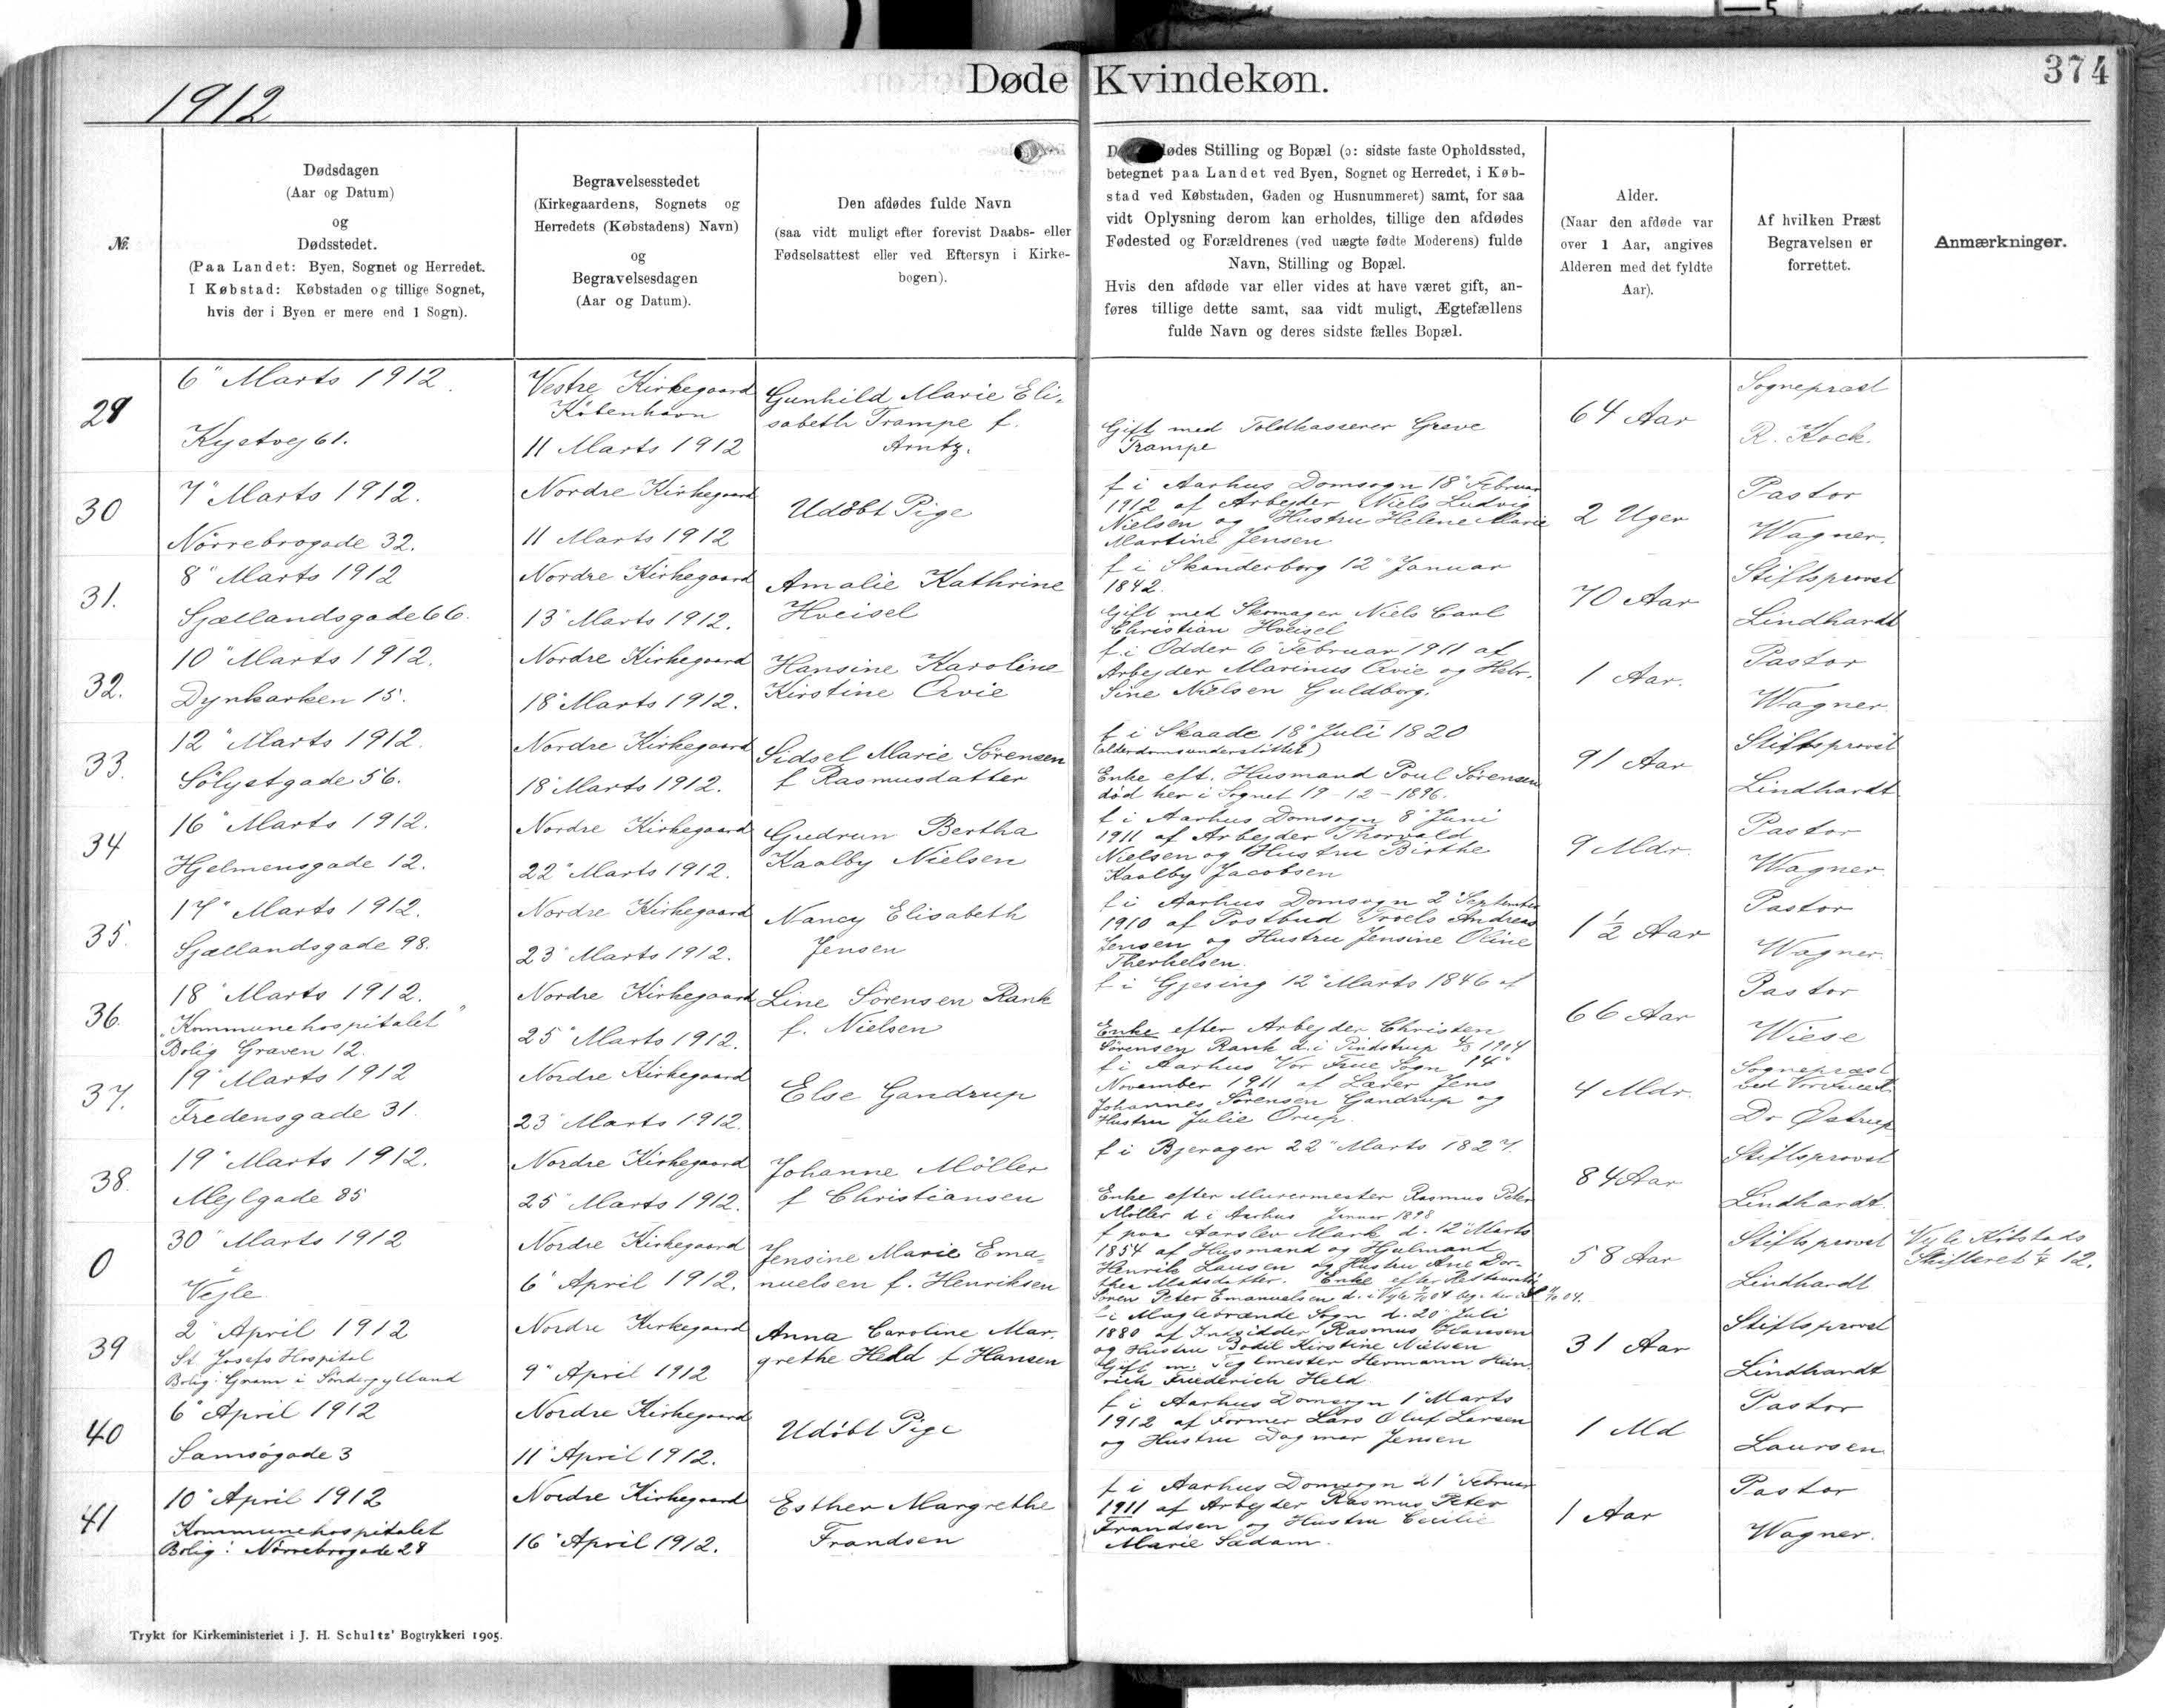 374
Døde Kvindekøn.
1912
№.
Dødsdagen
(Aar og Datum)
og
Dødsstedet.
(Paa Landet: Byen, Sognet og Herredet.
I Købstad: Købstaden og tillige Sognet,
hvis der i Byen er mere end 1 Sogn).
Begravelsesstedet
(Kirkegaardens, Sognets og
Herredets (Købstadens) Navn)
og
Begravelsesdagen
(Aar og Datum).
Den afdødes fulde Navn
(saa vidt muligt efter forevist Daabs- eller
Fødselsattest eller ved Eftersyn i Kirke-
bogen).
lødes Stilling og Bopæl (ɔ: sidste faste Opholdssted,
betegnet paa Landet ved Byen, Sognet og Herredet, i Køb-
stad ved Købstaden, Gaden og Husnummeret) samt, for saa
vidt Oplysning derom kan erholdes, tillige den afdødes
Fødested og Forældrenes (ved uægte fødte Moderens) fulde
Navn, Stilling og Bopæl.
Hvis den afdøde var eller vides at have været gift, an-
føres tillige dette samt, saa vidt muligt, Ægtefællens
fulde Navn og deres sidste fælles Bopæl.
Alder.
(Naar den afdøde var
over 1 Aar, angives
Alderen med det fyldte
Aar).
Af hvilken Præst
Begravelsen er
forrettet.
Anmærkninger.
29
6" Marts 1912.
Kystvej 61.
Vestre Kirkegaard
København
11 Marts 1912
Gunhild Marie Eli-
sabeth Trampe f.
Arntz.
Gift med Toldkasserer Greve
Trampe
64 Aar
Sognepræst
R. Kock.
30
7" Marts 1912.
Nörrebrogade 32.
Nordre Kirkegaard
11 Marts 1912
Udöbt Pige
f i Aarhus Domsogn 18" Februar
1912 af Arbejder Niels Ludvig
Nielsen og Hustru Helene Marie
Martine Jensen
2 Uger
Pastor
Wagner.
31.
8" Marts 1912
Sjællandsgade 66.
Nordre Kirkegaard
13" Marts 1912.
Amalie Kathrine
Hveisel
f i Skanderborg 12" Januar
1842.
Gift med Skomager Niels Carl
Christian Hveisel
70 Aar
Stiftsprovst
Lindhardt
32.
10" Marts 1912.
Dynkarken 15.
Nordre Kirkegaard
18" Marts 1912.
Hansine Karoline
Kirstine Qvie
f. i Odder 6" Februar 1911 af
Arbejder Marinus Qvie og Hstr.
Sine Nielsen Guldborg.
1 Aar.
Pastor
Wagner
33.
12" Marts 1912.
Sölystgade 56.
Nordre Kirkegaard
18" Marts 1912.
Sidsel Marie Sörensen
f Rasmusdatter
f i Skaade 18" Juli 1820
(alderdomsunderstöttet)
Enke eft. Husmand Poul Sörensen
död her i Sognet 19-12-1896.
91 Aar
Stiftsprovst
Lindhardt
34
16" Marts 1912.
Hjelmensgade 12.
Nordre Kirkegaard
22" Marts 1912.
Gudrun Bertha
Kaalby Nielsen
f i Aarhus Domsogn 8" Juni
1911 af Arbejder Thorvald
Nielsen og Hustru Birthe
Kaalby Jacobsen
9 Mdr.
Pastor
Wagner.
35.
17" Marts 1912.
Sjællandsgade 98.
Nordre Kirkegaard
23" Marts 1912.
Nancy Elisabeth
Jensen
f i Aarhus Domsogn 2" September
1910 af Postbud Troels Andreas
Jensen og Hustru Jensine Oline
Therkelsen.
1 ½ Aar
Pastor
Wagner.
36.
18" Marts 1912.
"Kommunehospitalet"
Bolig Graven 12.
Nordre Kirkegaard
25" Marts 1912.
Line Sörensen Rank
f. Nielsen
f i Gjesing 12" Marts 1846 af
Enke efter Arbejder Christen
Sörensen Rank d. i Pindstrup 4/3 1904
66 Aar
Pastor
Wiese
37.
19" Marts 1912
Fredensgade 31.
Nordre Kirkegaard
23" Marts 1912.
Else Gandrup
f i Aarhus Vor Frue Sogn 14"
November 1911 af Lærer Jens
Johannes Sörensen Gandrup og
Hustru Julie Orup.
4 Mdr.
Sognepræst
ved Vor Frue K.
Dr Østrup
38.
19" Marts 1912.
Mejlgade 85
Nordre Kirkegaard
25" Marts 1912.
Johanne Möller
f Christiansen
f i Bjerager 22" Marts 1827.
Enke efter Murermester Rasmus Peter
Möller d i Aarhus Januar 1898
84 Aar
Stiftsprovst
Lindhardt.
0
30" Marts 1912
Vejle
Nordre Kirkegaard
6' April 1912.
Jensine Marie Ema-
nuelsen f. Henriksen
f paa Aarslev Mark d. 12" Marts
1854 af Husmand og Hjulmand
Henrik Lausen og Hustru Ane Dor-
thea Madsdatter. Enke efter
Sören Peter Emanuelsen d. i Vejle
58 Aar
Stiftsprovst
Lindhardt
Vejle Köbstads
Skifteret ¼ 12.
39
2" April 1912
St. Josefs Hospital
Bolig: Gram i Sönderjylland
Nordre Kirkegaard
9" April 1912
Anna Caroline Mar-
grethe Held f Hansen
f i Maglebrænde Sogn d. 20" Juli
1880 af Indsidder Rasmus Hansen
og Hustru Bodil Kirstine Nielsen
Gift m. Teglmester Hermann Hein-
rich Friederich Held.
31 Aar
Stiftsprovst
Lindhardt
40
6" April 1912
Samsögade 3
Nordre Kirkegaard
11" April 1912.
Udöbt Pige
f i Aarhus Domsogn 1" Marts
1912 af Former Lars Oluf Larsen
og Hustru Dagmar Jensen
1 Md
Pastor
Laursen
41
10" April 1912
Kommunehospitalet
Bolig: Nörrebrogade 28
Nordre Kirkegaard
16" April 1912.
Esther Margrethe
Frandsen
f i Aarhus Domsogn 21" Februar
1911 af Arbejder Rasmus Peter
Frandsen og Hustru Cecilie
Marie Sadam.
1 Aar
Pastor
Wagner.
Trykt for Kirkeministeriet i J. H. Schultz' Bogtrykkeri 1905.